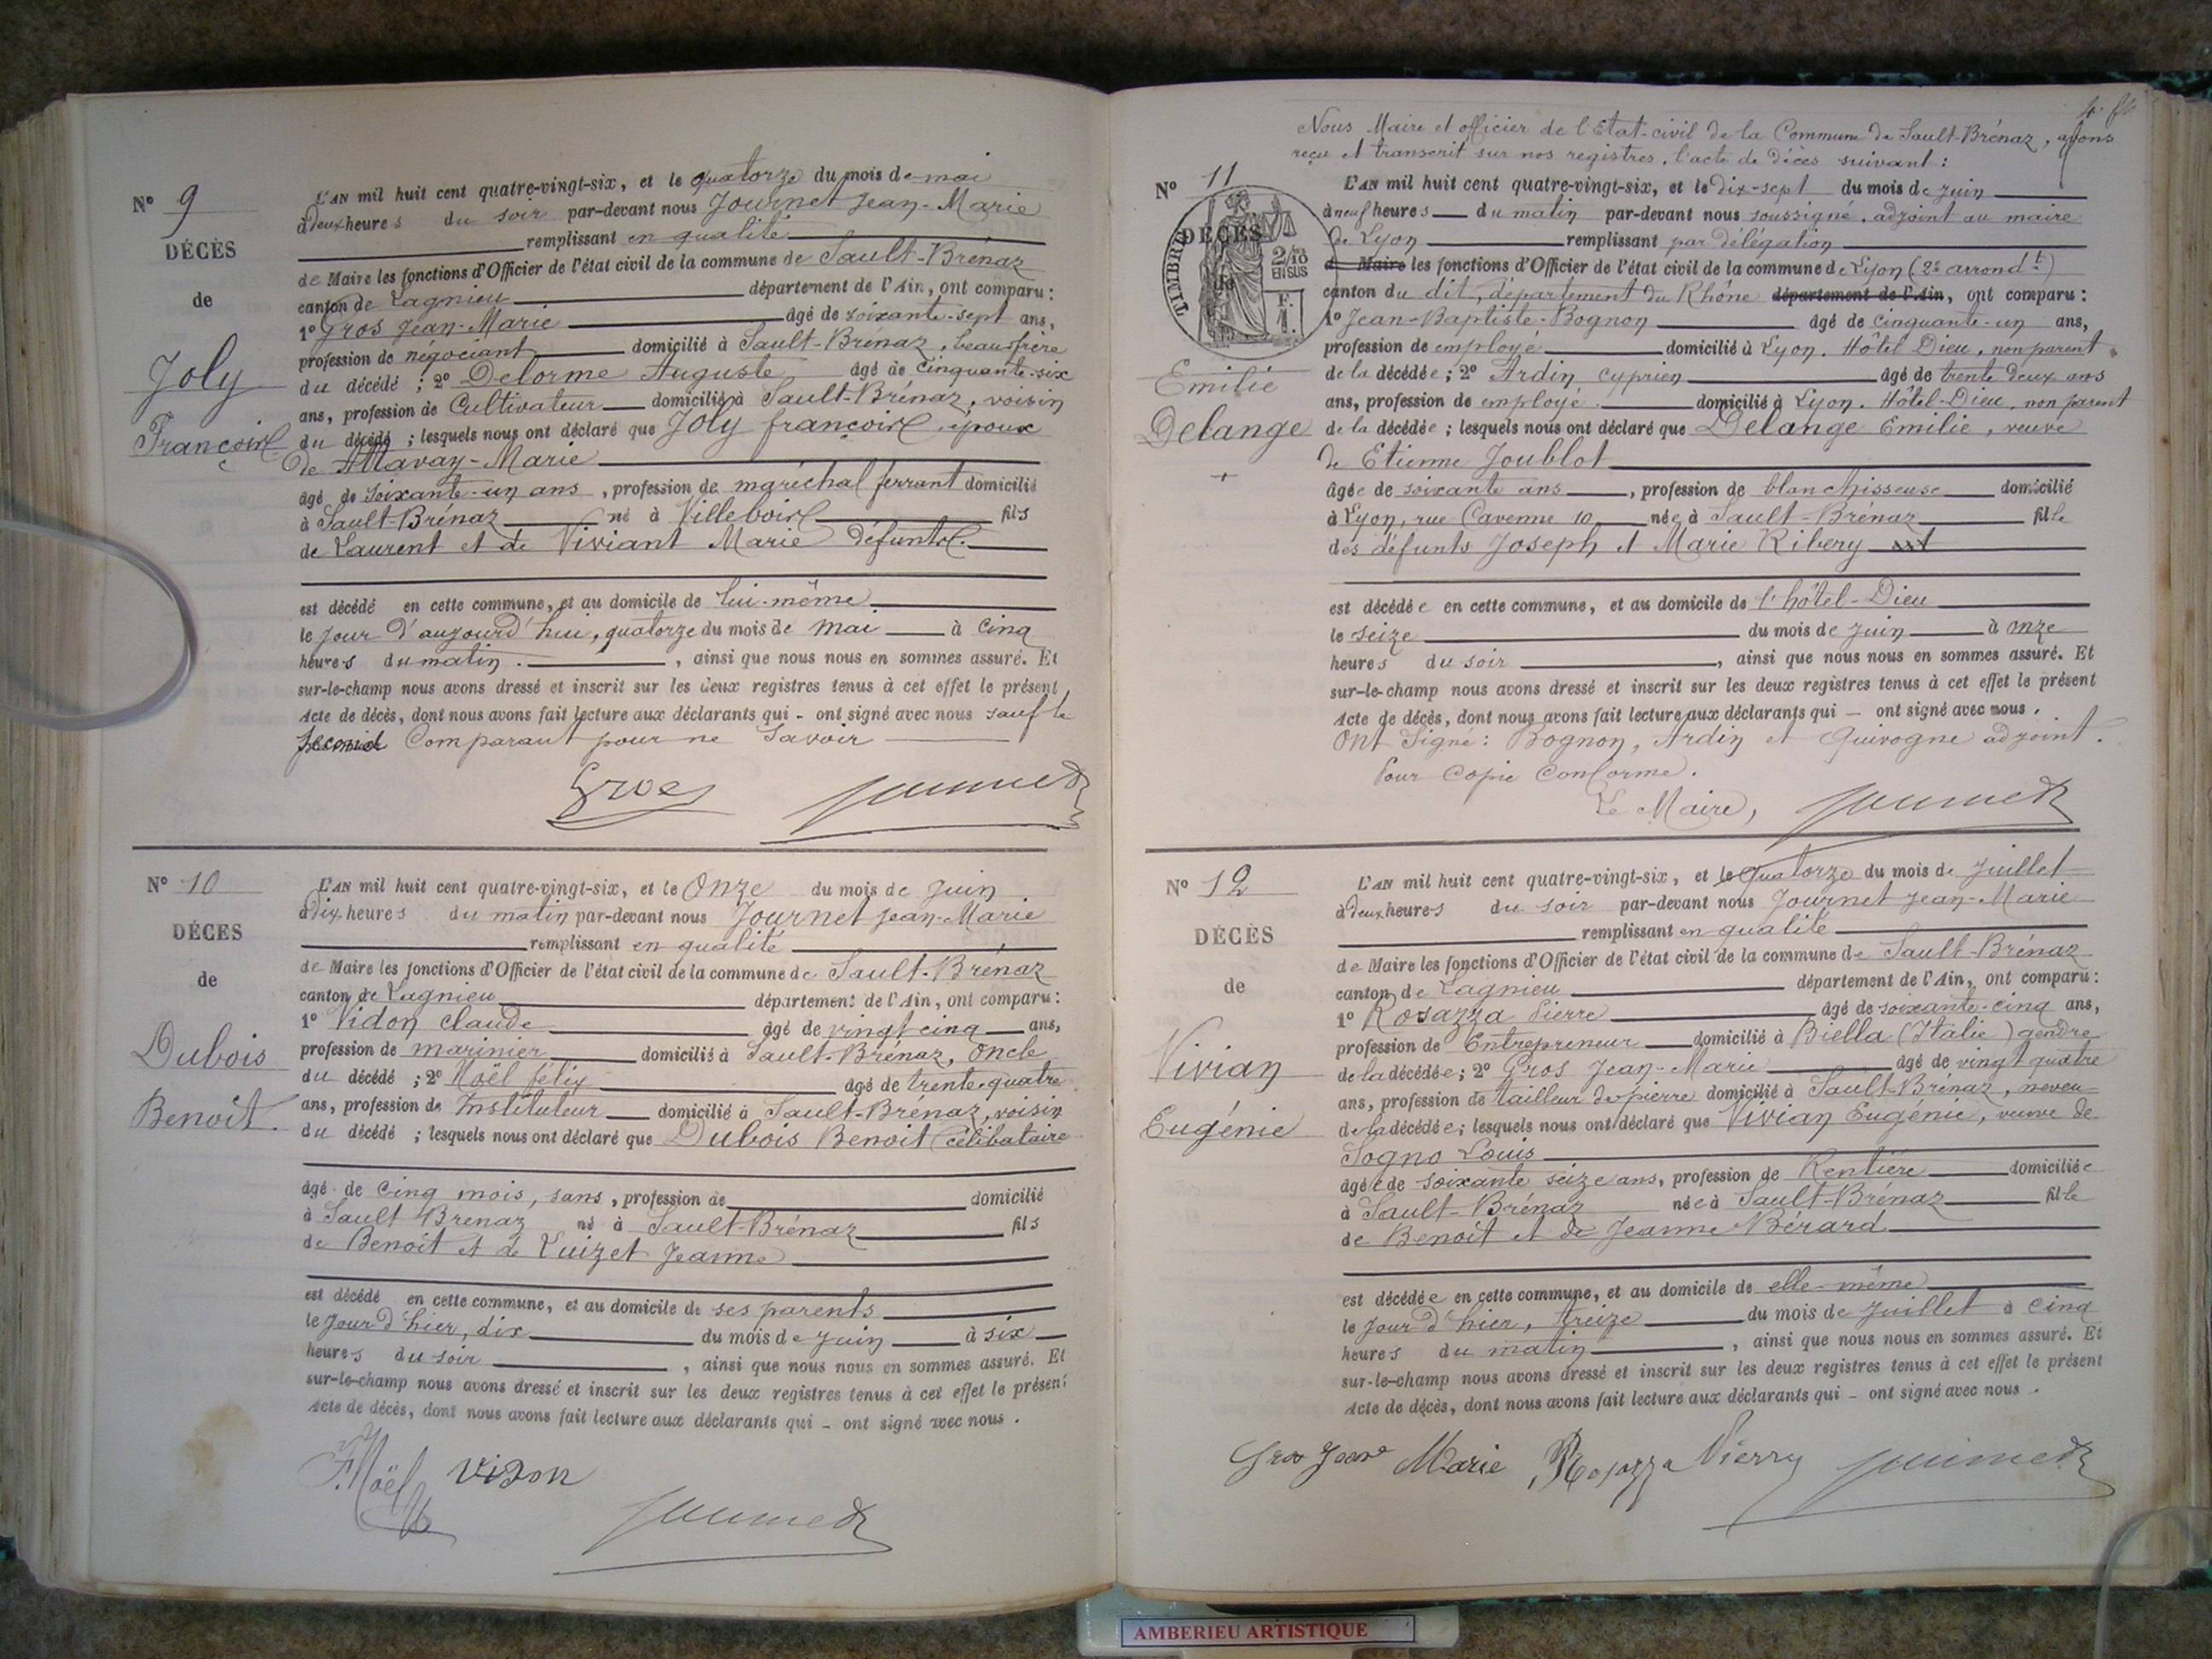 Nº 9
DÉCÈS
de
Joly
François
L'AN mil huit cent quatre-vingt-six, et le quatorze du mois de mai
à deux heures du soir par-devant nous Journet Jean-Marie
remplissant en qualité
de Maire les fonctions d'Officier de l'état civil de la commune de Sault-Brénaz
canton de Lagnieu département de l'Ain, ont comparu :
1º Gros Jean-Marie âgé de soixante-sept ans,
profession de négociant domicilié à Sault-Brénaz, beau-frère
du décédé ; 2º Delorme Auguste âgé de cinquante-six
ans, profession de Cultivateur domicilié à Sault-Brénaz, voisin
du décédé ; lesquels nous ont déclaré que Joly françois, époux
de Marie
âgé de soixante-un ans, profession de maréchal ferrant domicilié
à Sault-Brénaz né à Villebois fils
de Laurent et de Viviant Marie défunts.
est décédé en cette commune, et au domicile de lui-même
le jour d'aujourd'hui, quatorze du mois de mai à cinq
heures du matin. , ainsi que nous nous en sommes assuré. Et
sur-le-champ nous avons dressé et inscrit sur les deux registres tenus à cet effet le présent
Acte de décès, dont nous avons fait lecture aux déclarants qui - ont signé avec nous sauf le
second Comparant pour ne savoir
Gros Journet
Nº 10
DÉCÈS
de
Dubois
Benoit.
L'AN mil huit cent quatre-vingt-six, et le Onze du mois de juin
à dix heures du matin par-devant nous Journet Jean-Marie
remplissant en qualité
de Maire les fonctions d'Officier de l'état civil de la commune de Sault-Brénaz
canton de Lagnieu département de l'Ain, ont comparu :
1º Vidon Claude âgé de vingt cinq ans,
profession de marinier domicilié à Sault-Brénaz, Oncle
du décédé ; 2º Noël félix âgé de trente-quatre
ans, profession de Instituteur domicilié à Sault-Brénaz, voisin
du décédé ; lesquels nous ont déclaré que Dubois Benoit célibataire
âgé de cinq mois, sans, profession de domicilié
à Sault Brenaz né à Sault-Brénaz fils
de Benoit et de Luizet Jeanne
est décédé en cette commune, et au domicile de ses parents
le jour d'hier, dix du mois de juin à six
heures du soir , ainsi que nous nous en sommes assuré. Et
sur-le-champ nous avons dressé et inscrit sur les deux registres tenus à cet effet le présent
Acte de décès, dont nous avons fait lecture aux déclarants qui - ont signé avec nous.
F. Noël vidon
Journet
Nous Maire et officier de l'Etat-civil de la Commune de Sault-Brénaz, avons
reçu et transcrit sur nos registres, l'acte de décès suivant :
Nº 11
DÉCÈS
de
TIMBRE
2/10
EN SUS
F.
1.
Emilie
Delange
L'AN mil huit cent quatre-vingt-six, et le dix-sept du mois de juin
à neuf heures du matin par-devant nous soussigné, adjoint au maire
de Lyon remplissant par délégation
de Maire les fonctions d'Officier de l'état civil de la commune de Lyon (2e arrondt)
canton du dit, département du Rhône département de l'Ain, ont comparu :
1º Jean-Baptiste Bognon âgé de cinquante-un ans,
profession de employé domicilié à Lyon. Hôtel Dieu, non parent
de la décédée ; 2º Ardin Cyprien âgé de trente deux ans
ans, profession de employé domicilié à Lyon. Hôtel-Dieu, non parent
de la décédée ; lesquels nous ont déclaré que Delange Emilie, veuve
de Etienne Joublot
âgée de soixante ans, profession de blanchisseuse domicilié
à Lyon, rue Cavenne 10 née à Sault-Brénaz fille
des défunts Joseph et Marie Ribery
est décédée en cette commune, et au domicile de l'hôtel-Dieu
le seize du mois de juin à onze
heures du soir , ainsi que nous nous en sommes assuré. Et
sur-le-champ nous avons dressé et inscrit sur les deux registres tenus à cet effet le présent
Acte de décès, dont nous avons fait lecture aux déclarants qui - ont signé avec nous.
Ont Signé : Bognon, Ardin et Quivogne adjoint.
Pour Copie Conforme.
Le Maire, Journet
Nº 12
DÉCÈS
de
Vivian
Eugénie
L'AN mil huit cent quatre-vingt-six, et le quatorze du mois de juillet
à deux heures du soir par-devant nous Journet Jean-Marie
remplissant en qualité
de Maire les fonctions d'Officier de l'état civil de la commune de Sault-Brénaz
canton de Lagnieu département de l'Ain, ont comparu :
1º Rosazza Pierre âgé de soixante-cinq ans,
profession de Entrepreneur domicilié à Biella (Italie) gendre
de la décédée ; 2º Gros Jean-Marie âgé de vingt quatre
ans, profession de tailleur de pierre domicilié à Sault-Brénaz, neveu
de la décédée ; lesquels nous ont déclaré que Vivian Eugénie, veuve de
Sogno Louis
âgée de soixante seize ans, profession de Rentière domiciliée
à Sault-Brénaz née à Sault-Brénaz fille
de Benoit et de Jeanne Bérard
est décédée en cette commune, et au domicile de elle-même
le jour d'hier, treize du mois de juillet à cinq
heures du matin , ainsi que nous nous en sommes assuré. Et
sur-le-champ nous avons dressé et inscrit sur les deux registres tenus à cet effet le présent
Acte de décès, dont nous avons fait lecture aux déclarants qui - ont signé avec nous.
Gros Jean Marie Rosazza Pierre Journet
AMBERIEU ARTISTIQUE